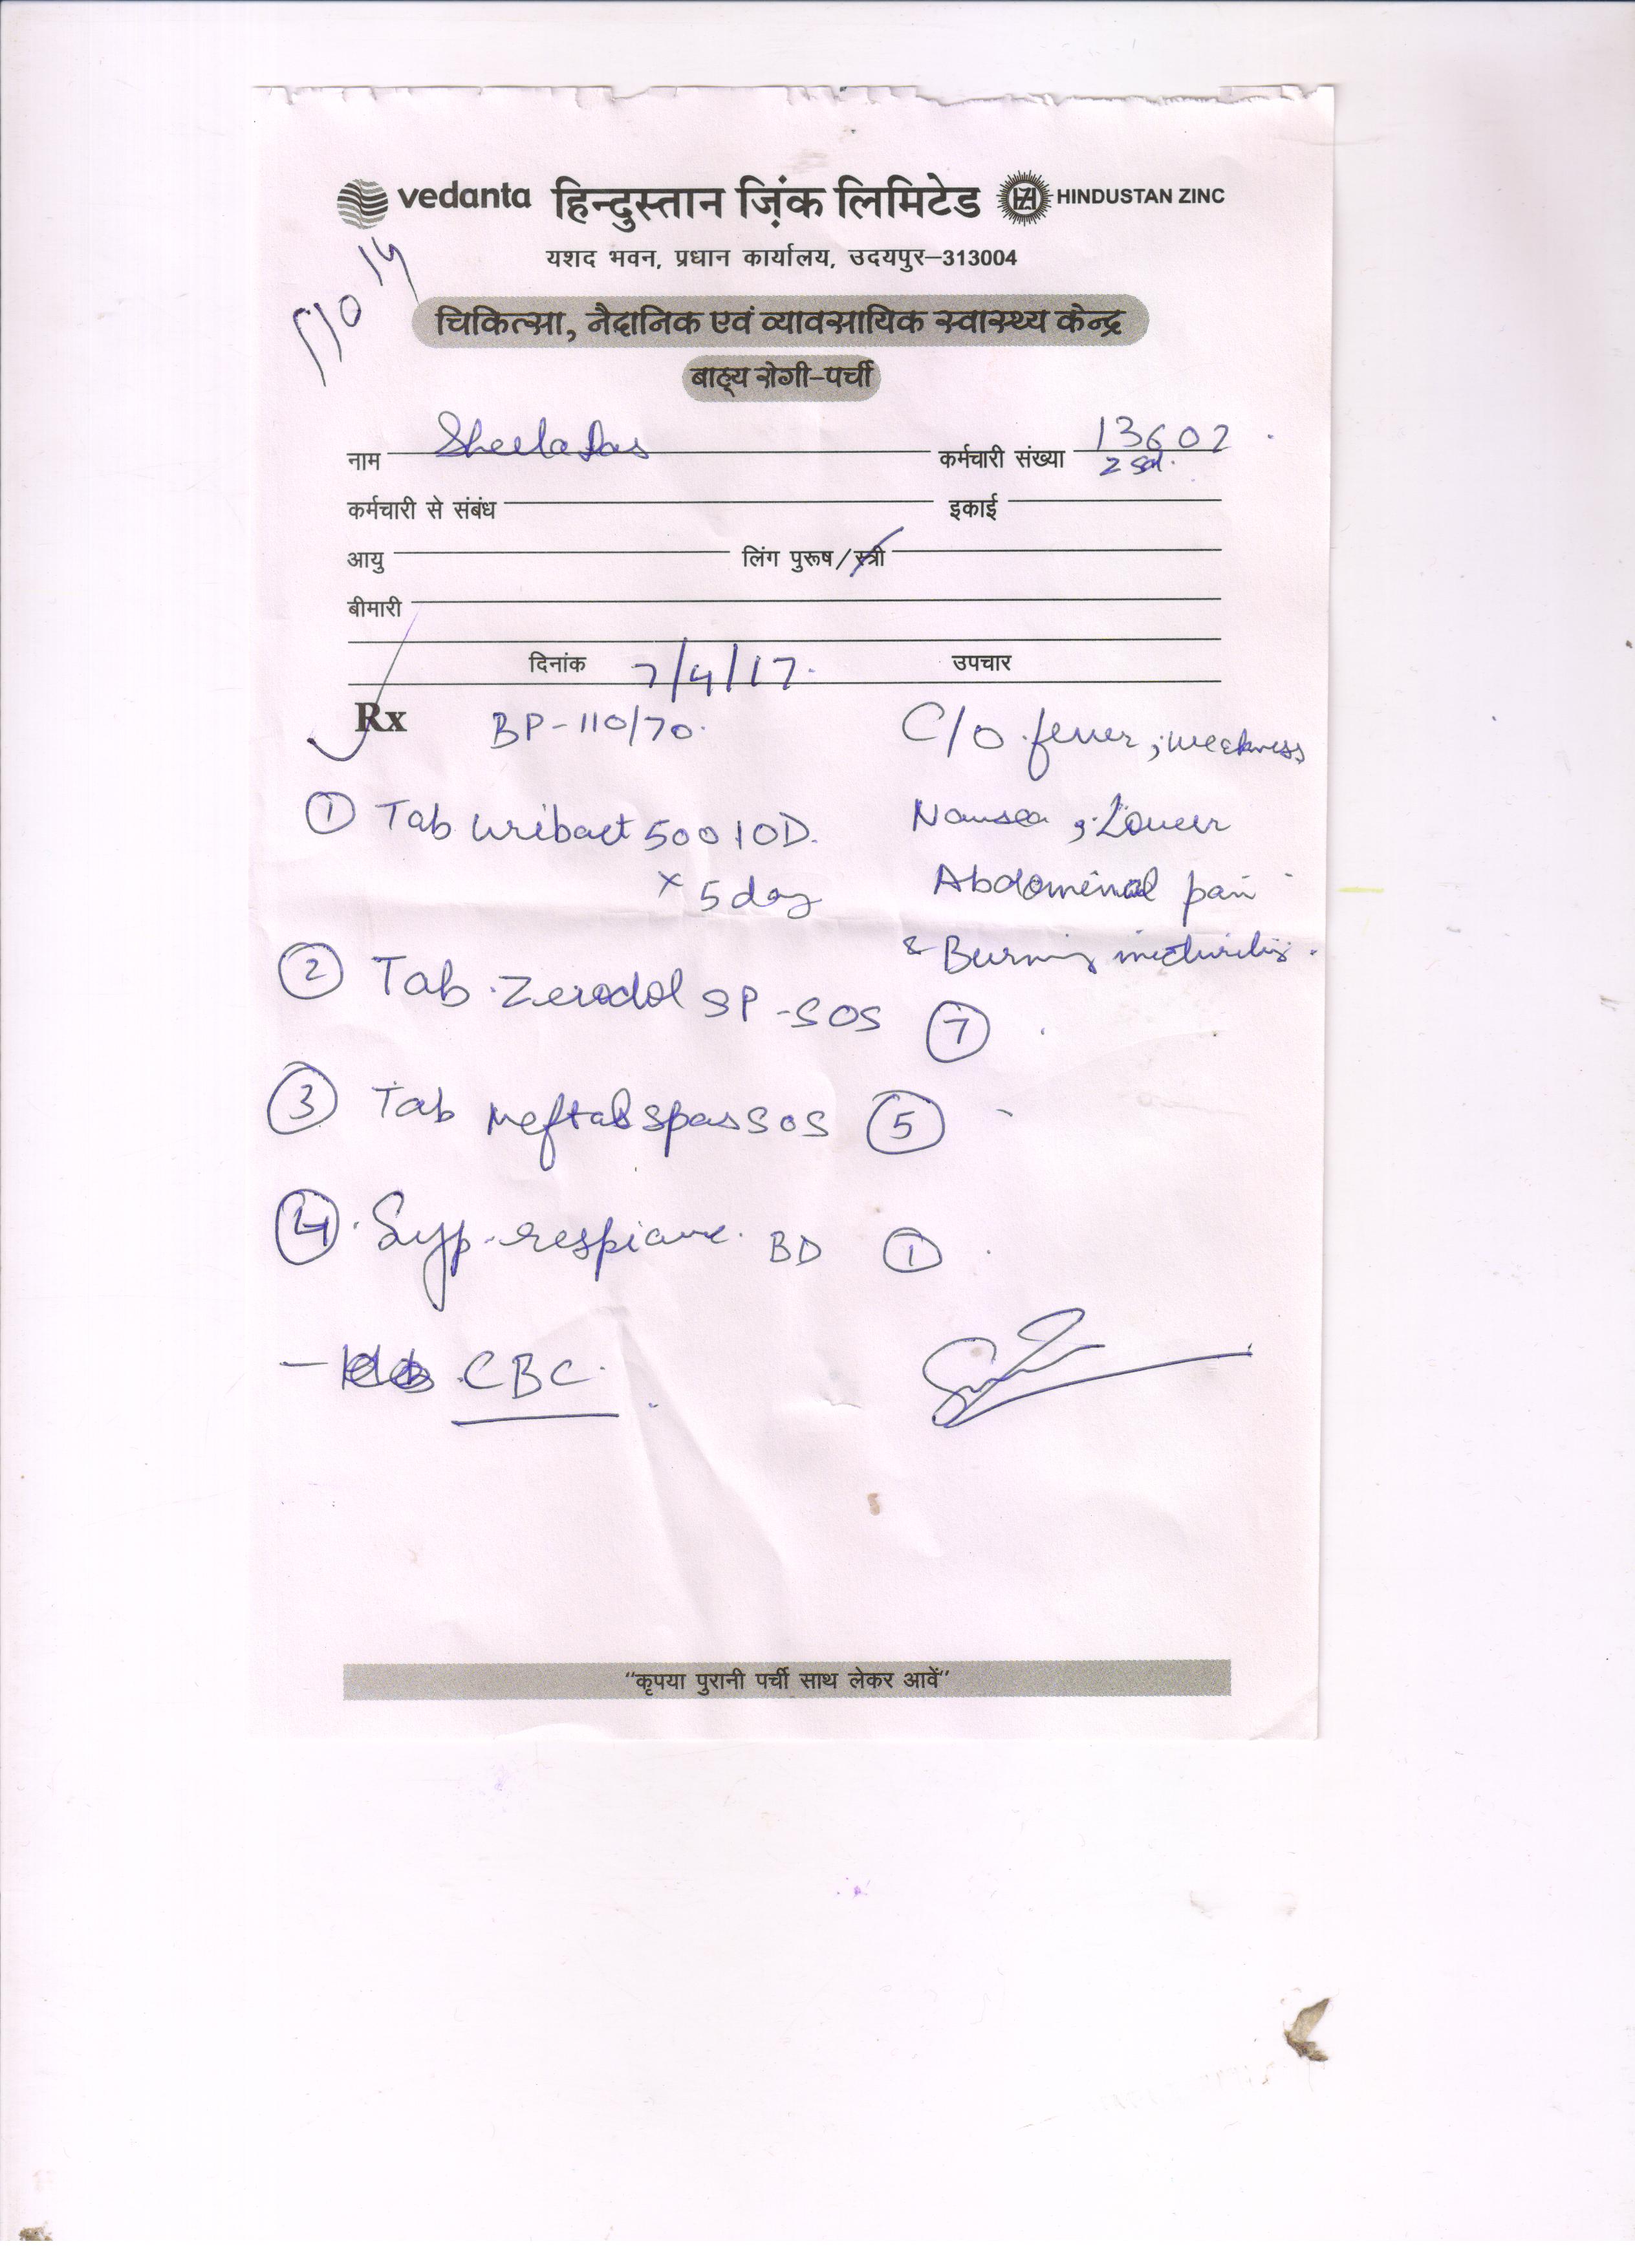 vedanta हिन्दुस्तान ज़िंक लिमिटेड HINDUSTAN ZINC
यशद भवन, प्रधान कार्यालय, उदयपुर–313004
चिकित्सा, नैदानिक एवं व्यावसायिक स्वास्थ्य केन्द्र
बाह्य रोगी-पर्ची
नाम Sheela Das कर्मचारी संख्या 13602
कर्मचारी से संबंध इकाई
आयु लिंग पुरूष/स्त्री
बीमारी
दिनांक 7/4/17. उपचार
Rx BP-110/70. C/O fever, weakness
① Tab Uribact 500 1OD. Nausea, Lower
x 5 day Abdominal pain
② Tab. Zerodol SP - SOS ⑦ & Burning
③ Tab Meftal spas SOS ⑤
④. Syp. BD ①
- CBC.
“कृपया पुरानी पर्ची साथ लेकर आवें”